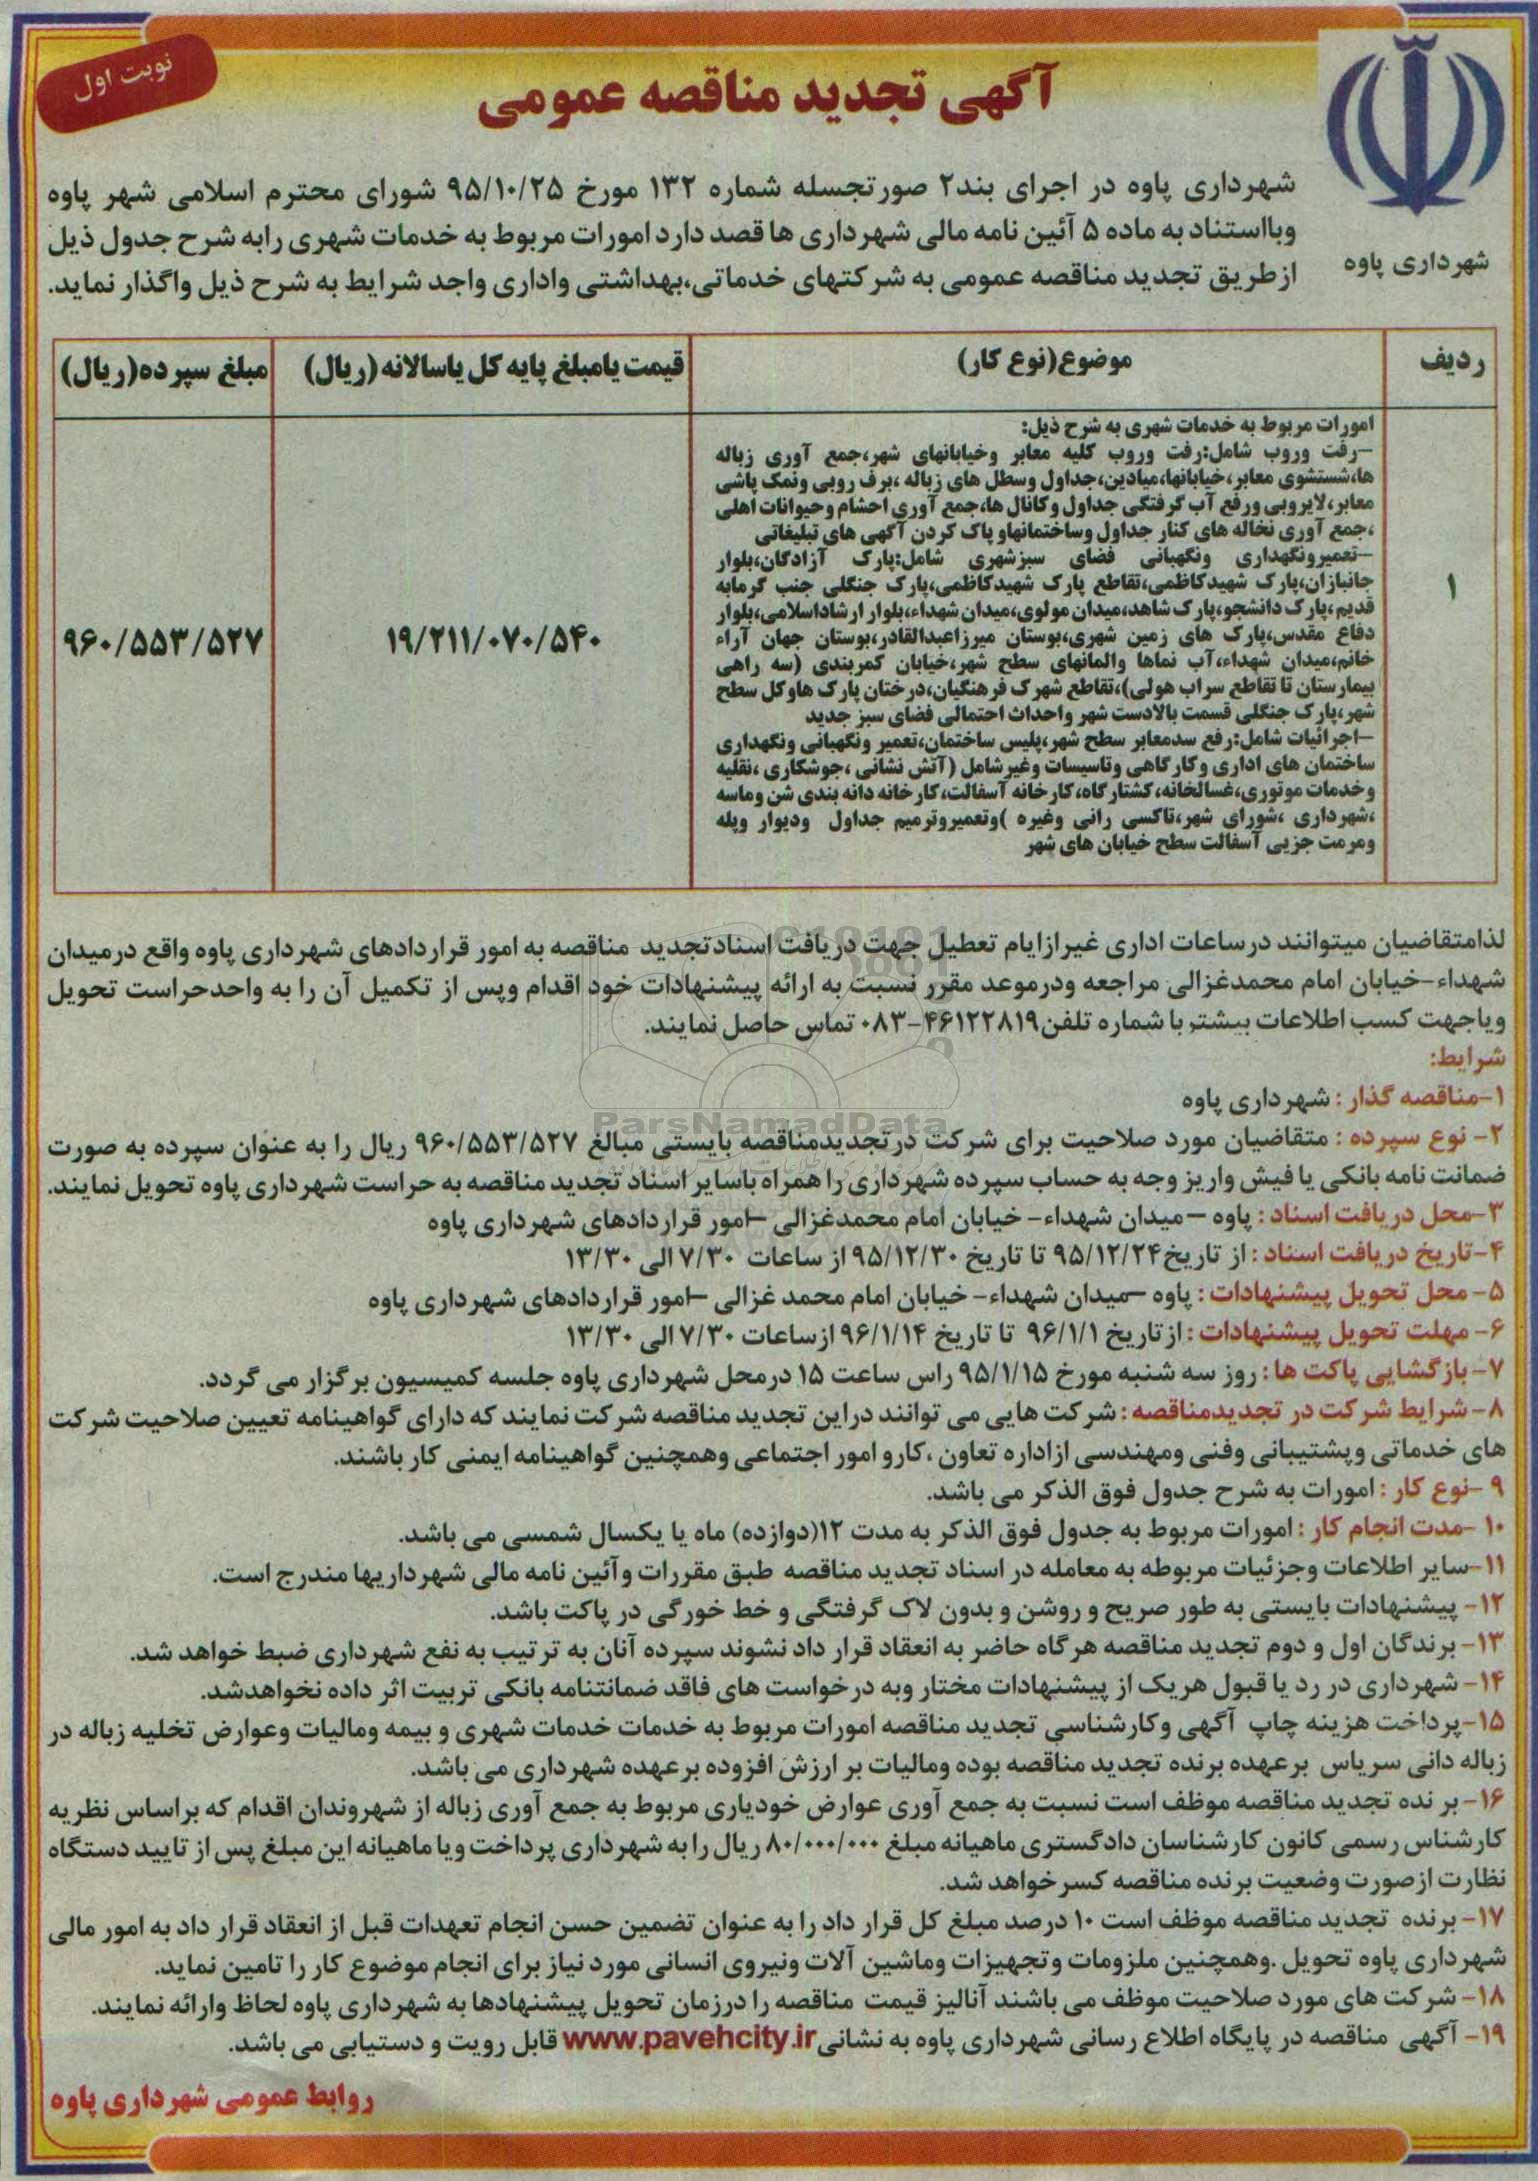 نوبت اول
آگهی تجدید مناقصه عمومی
شهرداری پاوه
شهرداری پاوه در اجرای بند۲ صورتجسله شماره ۱۳۲ مورخ ۹۵/۱۰/۲۵ شورای محترم اسلامی شهر پاوه
وبااستناد به ماده ۵ آئین نامه مالی شهرداری ها قصد دارد امورات مربوط به خدمات شهری رابه شرح جدول ذیل
ازطریق تجدید مناقصه عمومی به شرکتهای خدماتی،بهداشتی واداری واجد شرایط به شرح ذیل واگذار نماید.
ردیف
موضوع(نوع کار)
قیمت یامبلغ پایه کل یاسالانه (ریال)
مبلغ سپرده(ریال)
۱
امورات مربوط به خدمات شهری به شرح ذیل:
–رفت وروب شامل:رفت وروب کلیه معابر وخیابانهای شهر،جمع آوری زباله
ها،شستشوی معابر،خیابانها،میادین،جداول وسطل های زباله ،برف روبی ونمک پاشی
معابر،لایروبی ورفع آب گرفتگی جداول وکانال ها،جمع آوری احشام وحیوانات اهلی
،جمع آوری نخاله های کنار جداول وساختمانهاو پاک کردن آگهی های تبلیغاتی
–تعمیرونگهداری ونگهبانی فضای سبزشهری شامل:پارک آزادگان،بلوار
جانبازان،پارک شهیدکاظمی،تقاطع پارک شهیدکاظمی،پارک جنگلی جنب گرمابه
قدیم،پارک دانشجو،پارک شاهد،میدان مولوی،میدان شهداء،بلوار ارشاداسلامی،بلوار
دفاع مقدس،پارک های زمین شهری،بوستان میرزاعبدالقادر،بوستان جهان آراء
خانم،میدان شهداء،آب نماها والمانهای سطح شهر،خیابان کمربندی (سه راهی
بیمارستان تا تقاطع سراب هولی)،تقاطع شهرک فرهنگیان،درختان پارک هاوکل سطح
شهر،پارک جنگلی قسمت بالادست شهر واحداث احتمالی فضای سبز جدید
–اجرائیات شامل:رفع سدمعابر سطح شهر،پلیس ساختمان،تعمیر ونگهبانی ونگهداری
ساختمان های اداری وکارگاهی وتاسیسات وغیرشامل (آتش نشانی ،جوشکاری ،نقلیه
وخدمات موتوری،غسالخانه،کشتارگاه،کارخانه آسفالت،کارخانه دانه بندی شن وماسه
،شهرداری ،شورای شهر،تاکسی رانی وغیره )وتعمیروترمیم جداول ودیوار وپله
ومرمت جزیی آسفالت سطح خیابان های شهر
۱۹/۲۱۱/۰۷۰/۵۴۰
۹۶۰/۵۵۳/۵۲۷
لذامتقاضیان میتوانند درساعات اداری غیرازایام تعطیل جهت دریافت اسنادتجدید مناقصه به امور قراردادهای شهرداری پاوه واقع درمیدان
شهداء-خیابان امام محمدغزالی مراجعه ودرموعد مقرر نسبت به ارائه پیشنهادات خود اقدام وپس از تکمیل آن را به واحدحراست تحویل
ویاجهت کسب اطلاعات بیشتر با شماره تلفن۴۶۱۲۲۸۱۹-۰۸۳ تماس حاصل نمایند.
شرایط:
۱-مناقصه گذار : شهرداری پاوه
ParsNamadData
۲- نوع سپرده : متقاضیان مورد صلاحیت برای شرکت درتجدیدمناقصه بایستی مبالغ ۹۶۰/۵۵۳/۵۲۷ ریال را به عنوان سپرده به صورت
ضمانت نامه بانکی یا فیش واریز وجه به حساب سپرده شهرداری را همراه باسایر اسناد تجدید مناقصه به حراست شهرداری پاوه تحویل نمایند.
۳-محل دریافت اسناد : پاوه –میدان شهداء- خیابان امام محمدغزالی –امور قراردادهای شهرداری پاوه
۴-تاریخ دریافت اسناد : از تاریخ۹۵/۱۲/۲۴ تا تاریخ ۹۵/۱۲/۳۰ از ساعات ۷/۳۰ الی ۱۳/۳۰
۵- محل تحویل پیشنهادات : پاوه –میدان شهداء- خیابان امام محمد غزالی –امور قراردادهای شهرداری پاوه
۶- مهلت تحویل پیشنهادات : ازتاریخ ۹۶/۱/۱ تا تاریخ ۹۶/۱/۱۴ ازساعات ۷/۳۰ الی ۱۳/۳۰
۷- بازگشایی پاکت ها : روز سه شنبه مورخ ۹۵/۱/۱۵ راس ساعت ۱۵ درمحل شهرداری پاوه جلسه کمیسیون برگزار می گردد.
۸- شرایط شرکت در تجدیدمناقصه : شرکت هایی می توانند دراین تجدید مناقصه شرکت نمایند که دارای گواهینامه تعیین صلاحیت شرکت
های خدماتی وپشتیبانی وفنی ومهندسی ازاداره تعاون ،کارو امور اجتماعی وهمچنین گواهینامه ایمنی کار باشند.
۹ -نوع کار : امورات به شرح جدول فوق الذکر می باشد.
۱۰ -مدت انجام کار : امورات مربوط به جدول فوق الذکر به مدت ۱۲(دوازده) ماه یا یکسال شمسی می باشد.
۱۱-سایر اطلاعات وجزئیات مربوطه به معامله در اسناد تجدید مناقصه طبق مقررات وآئین نامه مالی شهرداریها مندرج است.
۱۲- پیشنهادات بایستی به طور صریح و روشن و بدون لاک گرفتگی و خط خورگی در پاکت باشد.
۱۳- برندگان اول و دوم تجدید مناقصه هرگاه حاضر به انعقاد قرار داد نشوند سپرده آنان به ترتیب به نفع شهرداری ضبط خواهد شد.
۱۴- شهرداری در رد یا قبول هریک از پیشنهادات مختار وبه درخواست های فاقد ضمانتنامه بانکی تربیت اثر داده نخواهدشد.
۱۵-پرداخت هزینه چاپ آگهی وکارشناسی تجدید مناقصه امورات مربوط به خدمات خدمات شهری و بیمه ومالیات وعوارض تخلیه زباله در
زباله دانی سریاس برعهده برنده تجدید مناقصه بوده ومالیات بر ارزش افزوده برعهده شهرداری می باشد.
۱۶- برنده تجدید مناقصه موظف است نسبت به جمع آوری عوارض خودیاری مربوط به جمع آوری زباله از شهروندان اقدام که براساس نظریه
کارشناس رسمی کانون کارشناسان دادگستری ماهیانه مبلغ ۸۰/۰۰۰/۰۰۰ ریال را به شهرداری پرداخت ویا ماهیانه این مبلغ پس از تایید دستگاه
نظارت ازصورت وضعیت برنده مناقصه کسرخواهد شد.
۱۷- برنده تجدید مناقصه موظف است ۱۰ درصد مبلغ کل قرار داد را به عنوان تضمین حسن انجام تعهدات قبل از انعقاد قرار داد به امور مالی
شهرداری پاوه تحویل .وهمچنین ملزومات وتجهیزات وماشین آلات ونیروی انسانی مورد نیاز برای انجام موضوع کار را تامین نماید.
۱۸- شرکت های مورد صلاحیت موظف می باشند آنالیز قیمت مناقصه را درزمان تحویل پیشنهادها به شهرداری پاوه لحاظ وارائه نمایند.
۱۹- آگهی مناقصه در پایگاه اطلاع رسانی شهرداری پاوه به نشانی www.pavehcity.ir قابل رویت و دستیابی می باشد.
روابط عمومی شهرداری پاوه